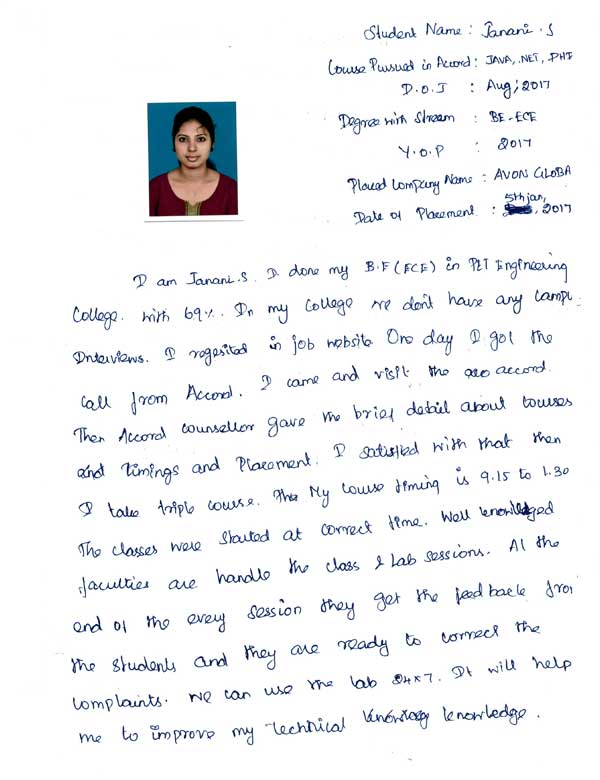 Student Name : Janani.S
Course Pursued in Accord : JAVA, .NET, PHP
D.O.J : Aug, 2017
Degree with Stream : BE-ECE
Y.O.P : 2017
Placed Company Name : AVON GLOBA
5th jan,
Date of Placement : , 2017
I am Janani.S. I done my B.E (ECE) in PET Engineering
College. with 69%. In my College we don't have any Camp
Interviews. I regesited in job website One day I got the
Call from Accord. I came and visit the accord.
Then Accord counsellor gave the brief detail about courses
and timings and Placement. I satisfied with that then
I take triple course. My Course timing is 9.15 to 1.30
The classes were started at correct time. Well knowledged
faculties are handle the class & Lab sessions. At the
end of the every session they get the feedback from
the students and they are ready to correct the
complaints. We can use the lab 24x7. It will help
me to improve my technical knowledge.